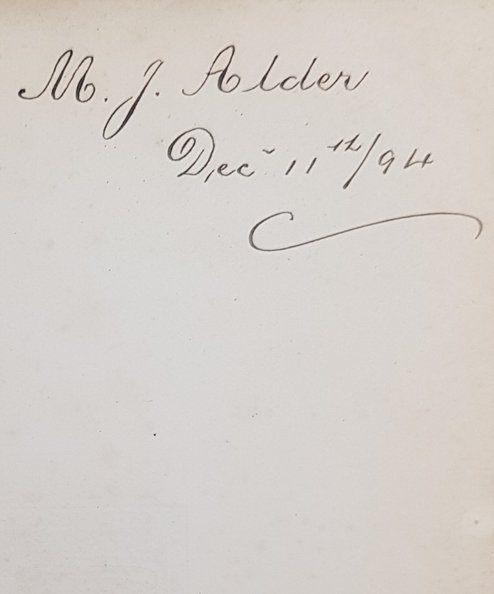 M. J. Alder
Dec 11th/94